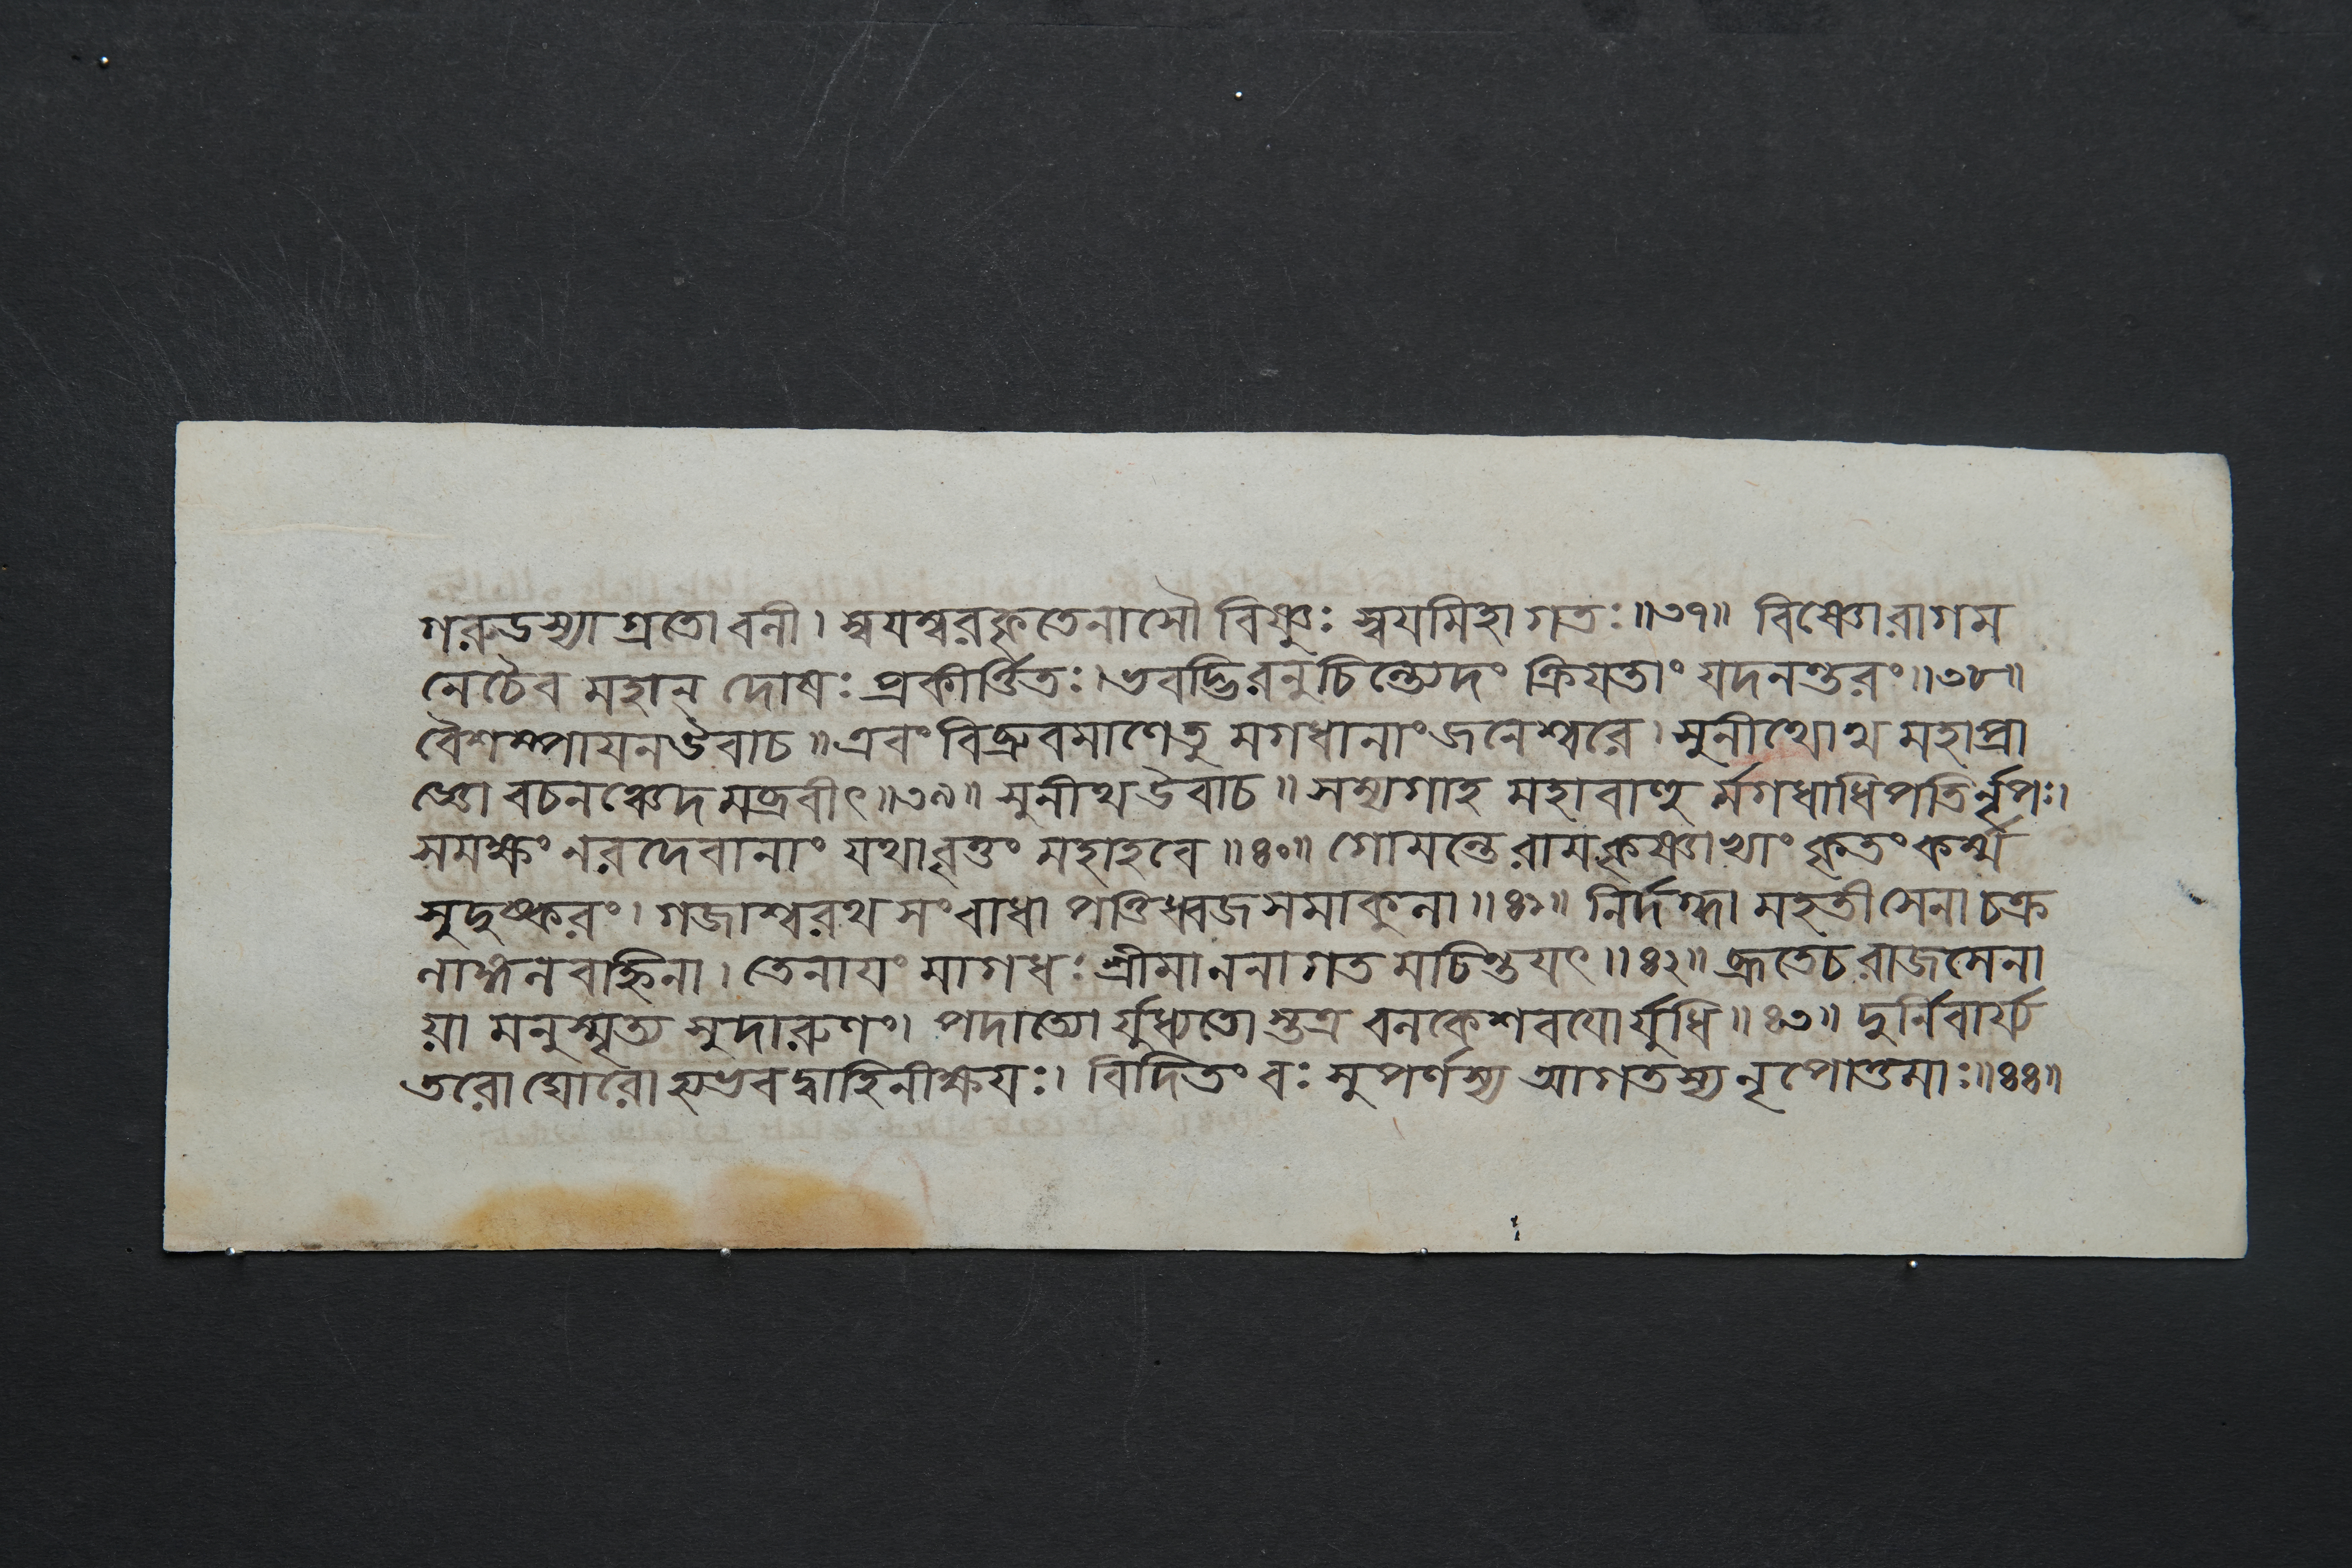 গরুডস্যাগ্রতো বলী। স্বযম্বরকৃতেনাসৌ বিষ্ণুঃ স্বযমিহাগতঃ॥৩৭॥ বিষ্ণোরাগম
নেচৈব মহান্ দোষঃ প্রকীর্ত্তিতঃ। ভবদ্ভিরনুচিন্ত্যেদং ক্রিযতাং যদনন্তরং॥৩৮॥
বৈশম্পাযনউবাচ॥ এবং বিব্রুবমাণেতু মগধানাংজনেশ্বরে। সুনীথোথ মহাপ্রা
জ্ঞো বচনঞ্চেদমব্রবীৎ॥৩৯॥ সুনীথউবাচ॥ সম্যগাহ মহাবাহু র্মগধাধিপতির্নৃপঃ।
সমক্ষং নরদেবানাং যথাবৃত্তং মহাহবে॥৪০॥ গোমন্তে রামকৃষ্ণাভ্যাং কৃতং কর্ম্ম
সুদুষ্করং। গজাশ্বরথসংবাধা পত্তিধ্বজসমাকুলা॥৪১॥ নির্দগ্ধা মহতীসেনা চক্র
লাঙ্গলবহ্নিনা। তেনাযং মাগধঃ শ্রীমাননাগতমচিন্তযৎ॥৪২॥ ব্রুতেচরাজসেনা
য়া মনুস্মৃত্য সুদারুণং। পদাত্যো র্যুধ্যতোস্তত্র বলকেশবযোর্যুধি॥৪৩॥ দুর্নিবার্য
তরোঘোরো হ্যভবদ্বাহিনীক্ষযঃ। বিদিতং বঃ সুপর্ণস্য আগতস্য নৃপোত্তমাঃ॥৪৪॥